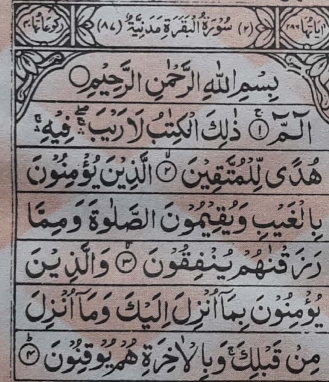 اٰيَاتُهَا ٢٨٦ (٢) سُوْرَةُ الْبَقَرَةِ مَدَنِيَّةٌ (٨٧) رُكُوْعَاتُهَا ٤٠
بِسْمِ اللهِ الرَّحْمٰنِ الرَّحِيْمِ
الٓمّٓ ۚ﴿١﴾ ذٰلِكَ الْكِتٰبُ لَا رَيْبَ ۛۖ فِيْهِ ۛۚ
هُدًى لِّلْمُتَّقِيْنَ ۙ﴿٢﴾ الَّذِيْنَ يُؤْمِنُوْنَ
بِالْغَيْبِ وَيُقِيْمُوْنَ الصَّلٰوةَ وَمِمَّا
رَزَقْنٰهُمْ يُنْفِقُوْنَ ۙ﴿٣﴾ وَالَّذِيْنَ
يُؤْمِنُوْنَ بِمَاۤ اُنْزِلَ اِلَيْكَ وَمَاۤ اُنْزِلَ
مِنْ قَبْلِكَ ۚ وَبِالْاٰخِرَةِ هُمْ يُوْقِنُوْنَ ؕ﴿٤﴾